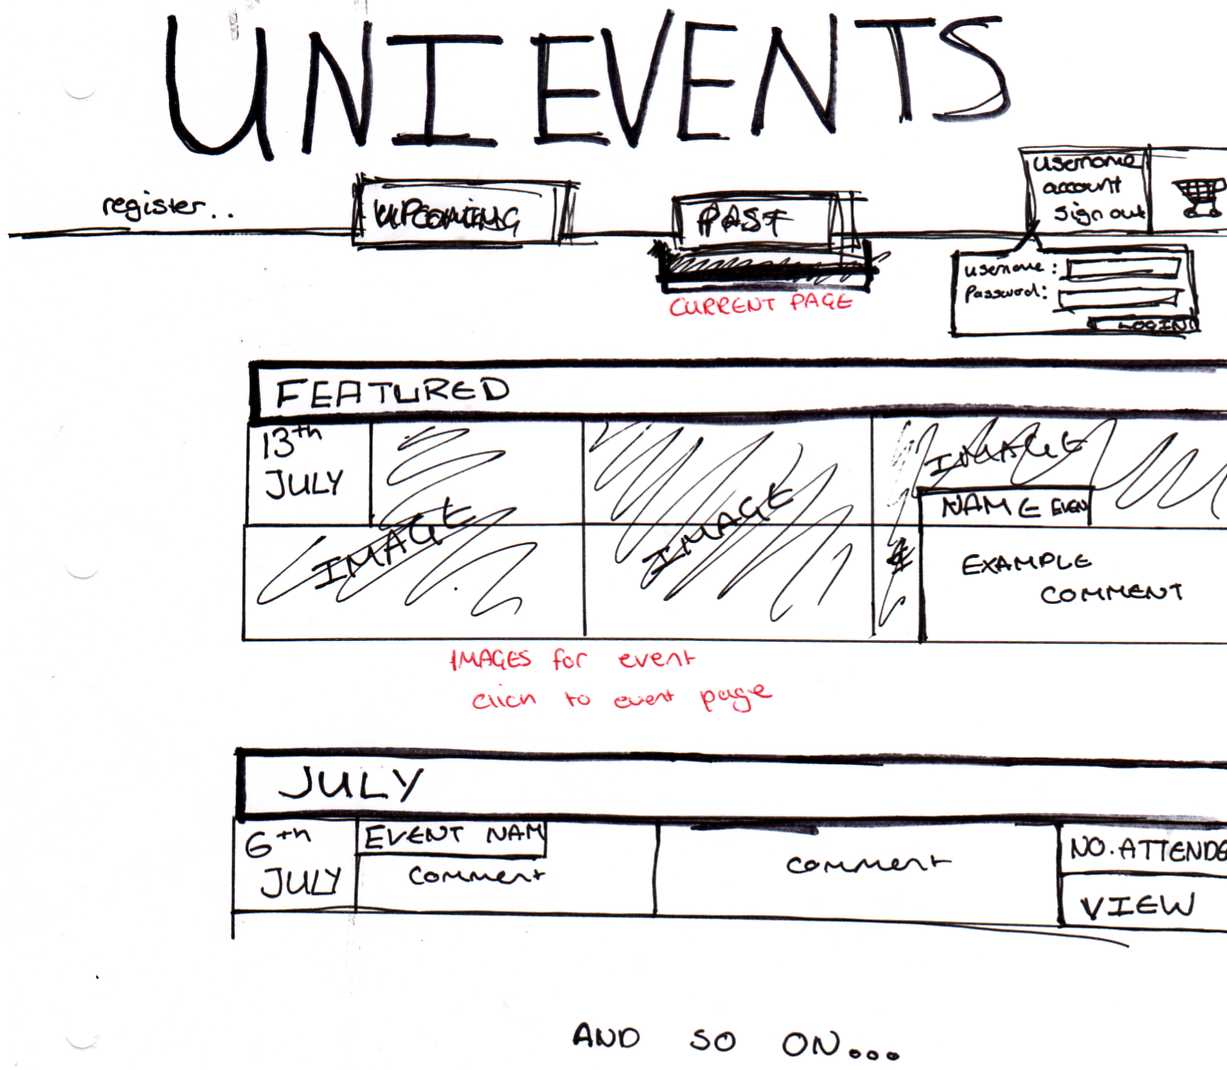 UNIEVENTS
register..
UPCOMING
PAST
username
account
sign out
username:
Password:
LOGIN
CURRENT PAGE
FEATURED
13th
JULY
IMAGE
IMAGE
IMAGE
NAME EVEN
EXAMPLE
COMMENT
IMAGES for event
click to event page
JULY
6th
JULY
EVENT NAM
comment
comment
NO. ATTENDE
VIEW
AND SO ON...